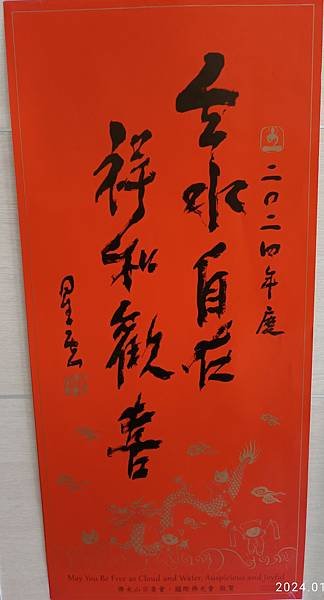 二〇二四年度
云水自在
祥和歡喜
星雲
May You Be Free as Cloud and Water, Auspicious and Joyful
佛光山宗委會・國際佛光會 敬賀
2024.01